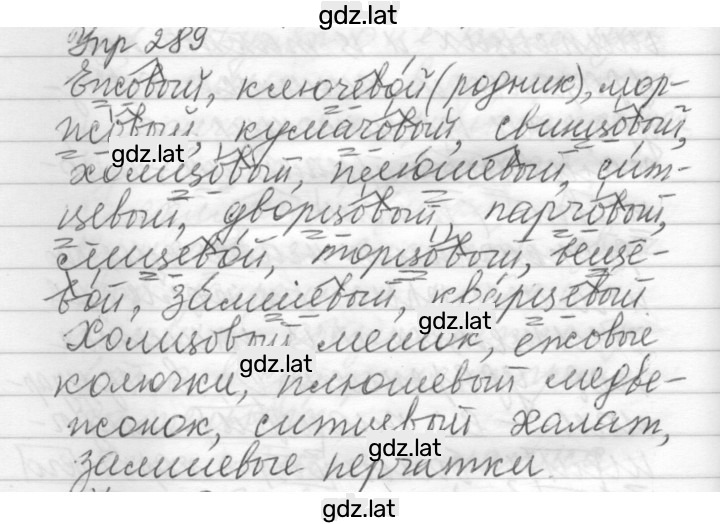 gdz.lat
Упр 289
Ежовый, ключевой (родник), мор-
жовый, кумачовый, свинцовый,
gdz.lat
холщовый, плюшевый, сит-
цевый, дворцовый, парчовый,
слицевой, торцовый, веще-
вой, замшевый, кварцевый
gdz.lat
Холщовый мешок, ежовые
gdz.lat
колючки, плюшевый медве-
жонок, ситцевый халат,
gdz.lat
замшевые перчатки.
gdz.lat